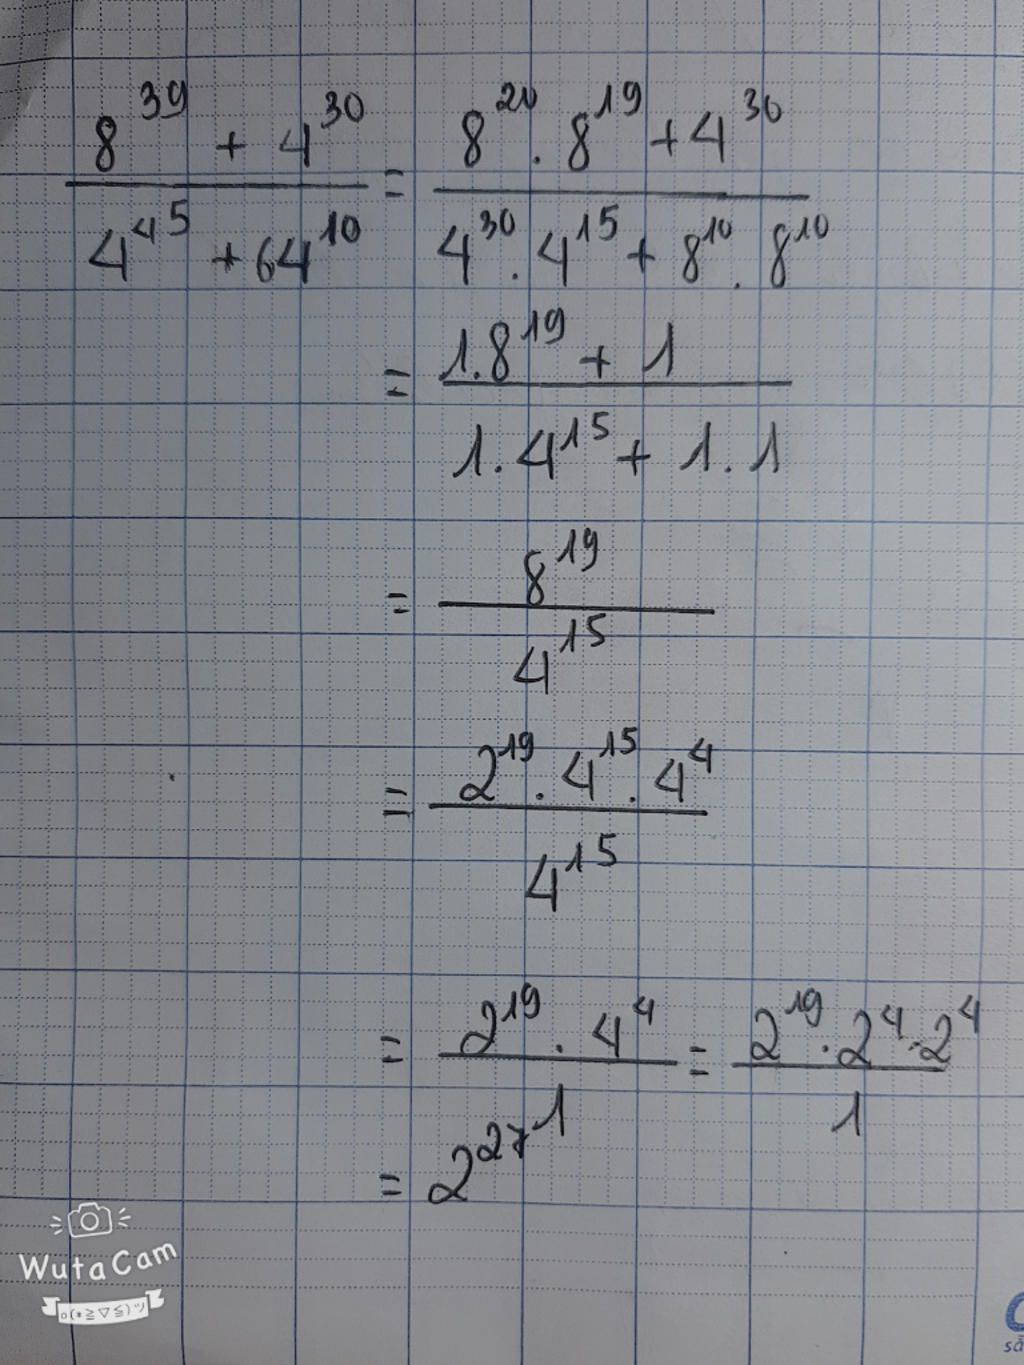 8^39 + 4^30 / 4^45 + 64^10 = 8^20 . 8^19 + 4^30 / 4^30 . 4^15 + 8^10 . 8^10
= 1.8^19 + 1 / 1.4^15 + 1.1
= 8^19 / 4^15
= 2^19 . 4^15 . 4^4 / 4^15
= 2^19 . 4^4 / 1 = 2^19 . 2^4 . 2^4 / 1
= 2^27
WutaCam
o(*≧▽≦)ツ